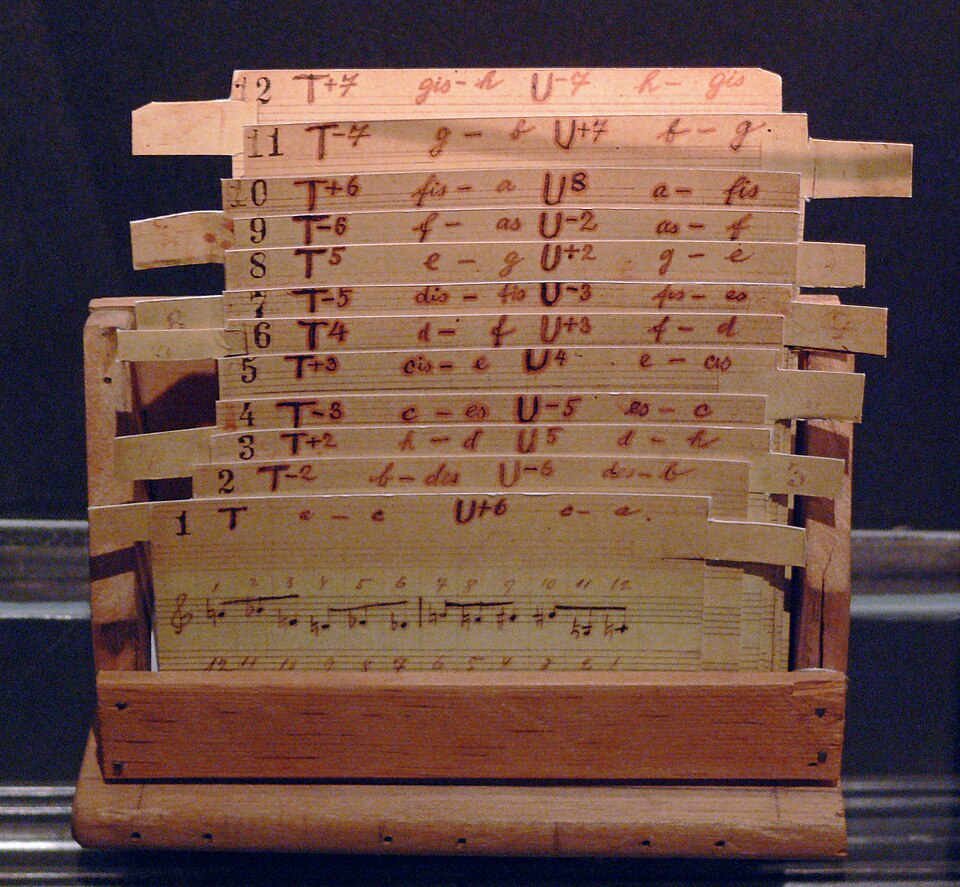 12 T+7 gis - h U-7 h - gis
11 T-7 g - b U+7 b - g
10 T+6 fis - a U8 a - fis
9 T-6 f - as U-2 as - f
8 T5 e - g U+2 g - e
7 T-5 dis - fis U-3 fis - es
6 T4 d - f U+3 f - d
5 T+3 cis - e U4 e - cis
4 T-3 c - es U-5 es - c
3 T+2 h - d U5 d - h
2 T-2 b - des U-6 des - b
3
1 T a - c U+6 c - a.
1 2 3 4 5 6 7 8 9 10 11 12
12 11 10 9 8 7 6 5 4 3 2 1